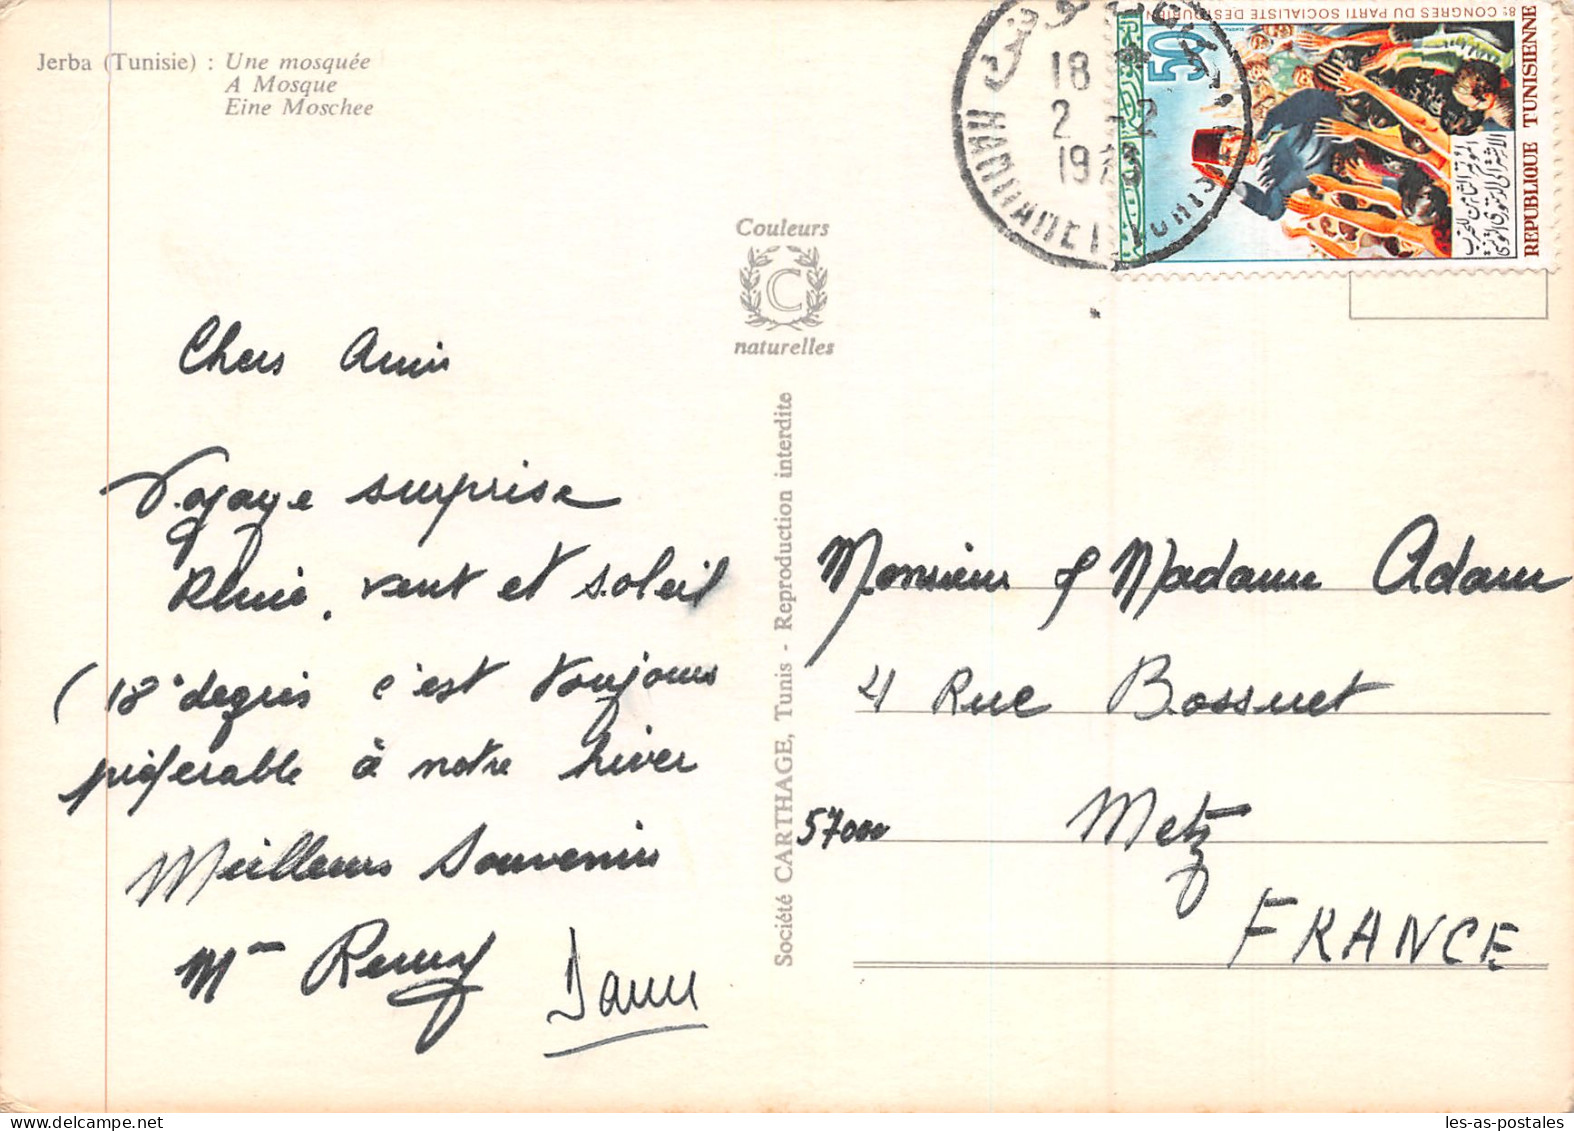 Jerba (Tunisie) : Une mosquée
A Mosque
Eine Moschee
Couleurs
C
naturelles
Société CARTHAGE, Tunis - Reproduction interdite
18
2 - 2
197
HAMMAMET
50
8e CONGRES DU PARTI SOCIALISTE DESTOURIEN
REPUBLIQUE TUNISIENNE
Chers Amis
Voyage surprise
Pluie, vent et soleil
(18° degrés c'est toujours
préférable à notre hiver
Meilleurs Souvenirs
Mme Remy
Monsieur & Madame Adam
4 Rue Bossuet
57000 Metz
FRANCE
les-as-postales